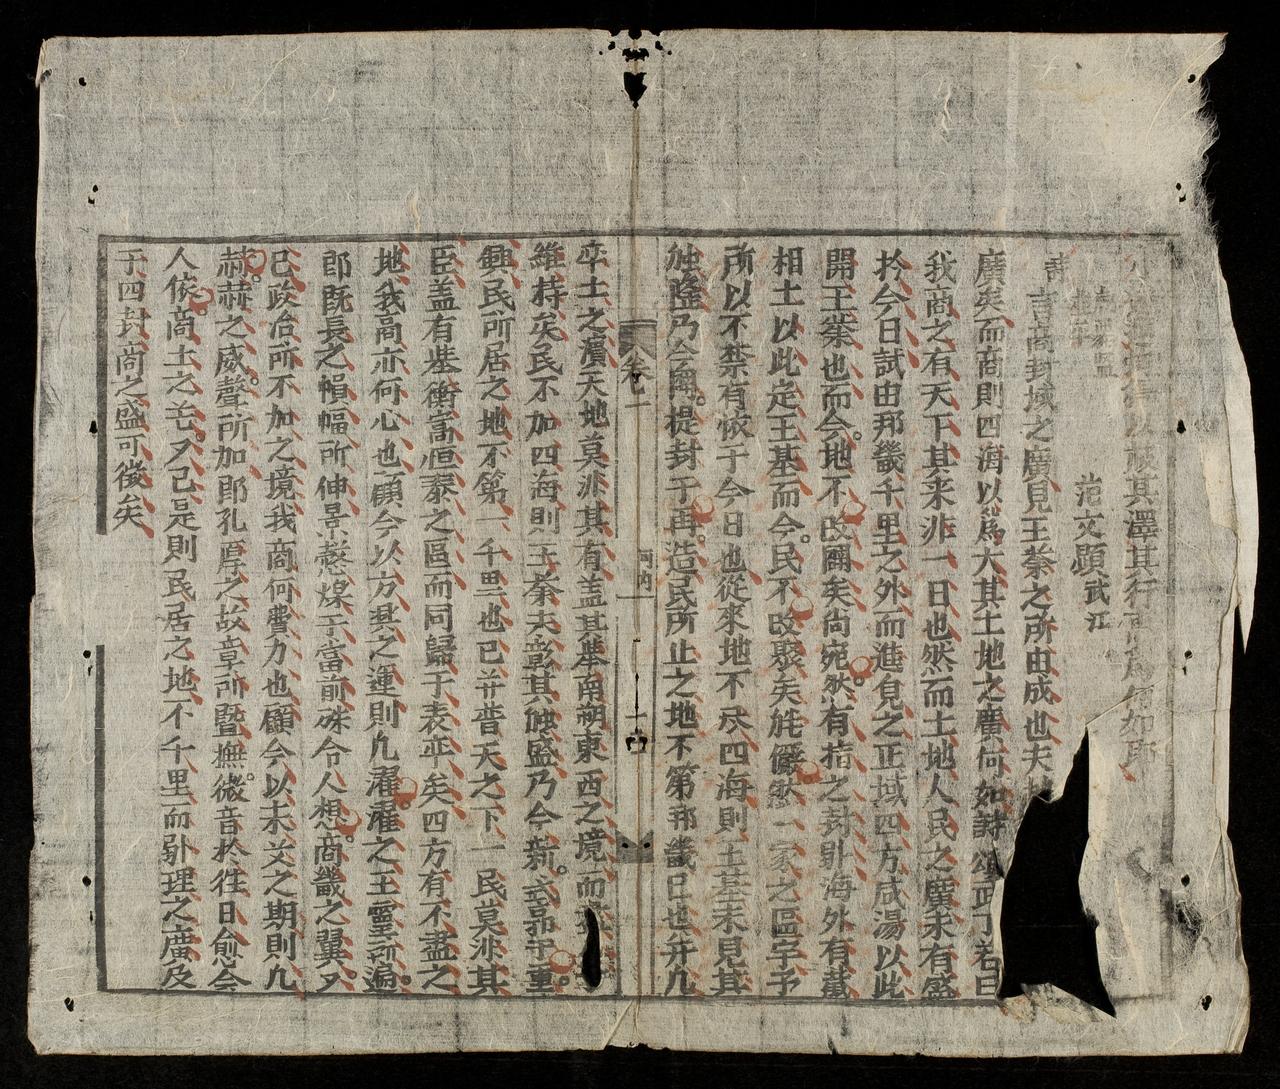 其澤其行
范文顯武江
詩言商封域之廣見王業之所由成也夫
廣矣而商則四海以為大其土地之廣何如詩頌武丁若曰
我商之有天下其来非一日也然而土地人民之廣未有盛
於今日試由那畿千里之外而造自之正域四方咸湯以此
開王業也而今地不改闢矣尚宛然有指之封肇海外有截
相土以此定王基而今民不改聚矣旄儼然一家之區宇予
所以不禁有恢于今日也從來地不尽四海則王基未見其
隆乃今爾提封于再造民所止之地不第邦畿已也并凡
率土之濱天地莫非其有盖其舉南朔東西之境而
維持矣民不加四海則王業未彰其盛乃今新式部于重
興民所居之地不第一千里也已并普天之下一民莫非其
臣盖有恒衡高恒泰之區而同歸于表率矣四方有不盡之
地我商亦何心也顧今以方興之運則凡濯濯之王靈所遍
即既長之幅幅所伸景慤煤于當前殊令人想商畿之翼又
已政治所不加之境我商何費力也顧今以未艾之期則凡
赫赫之威聲所加即孔厚之故章所暨撫微音於往日愈令
人依商土之芒又已是則民居之地不千里而肇理之廣及
于四封商之盛可徵矣
卷一